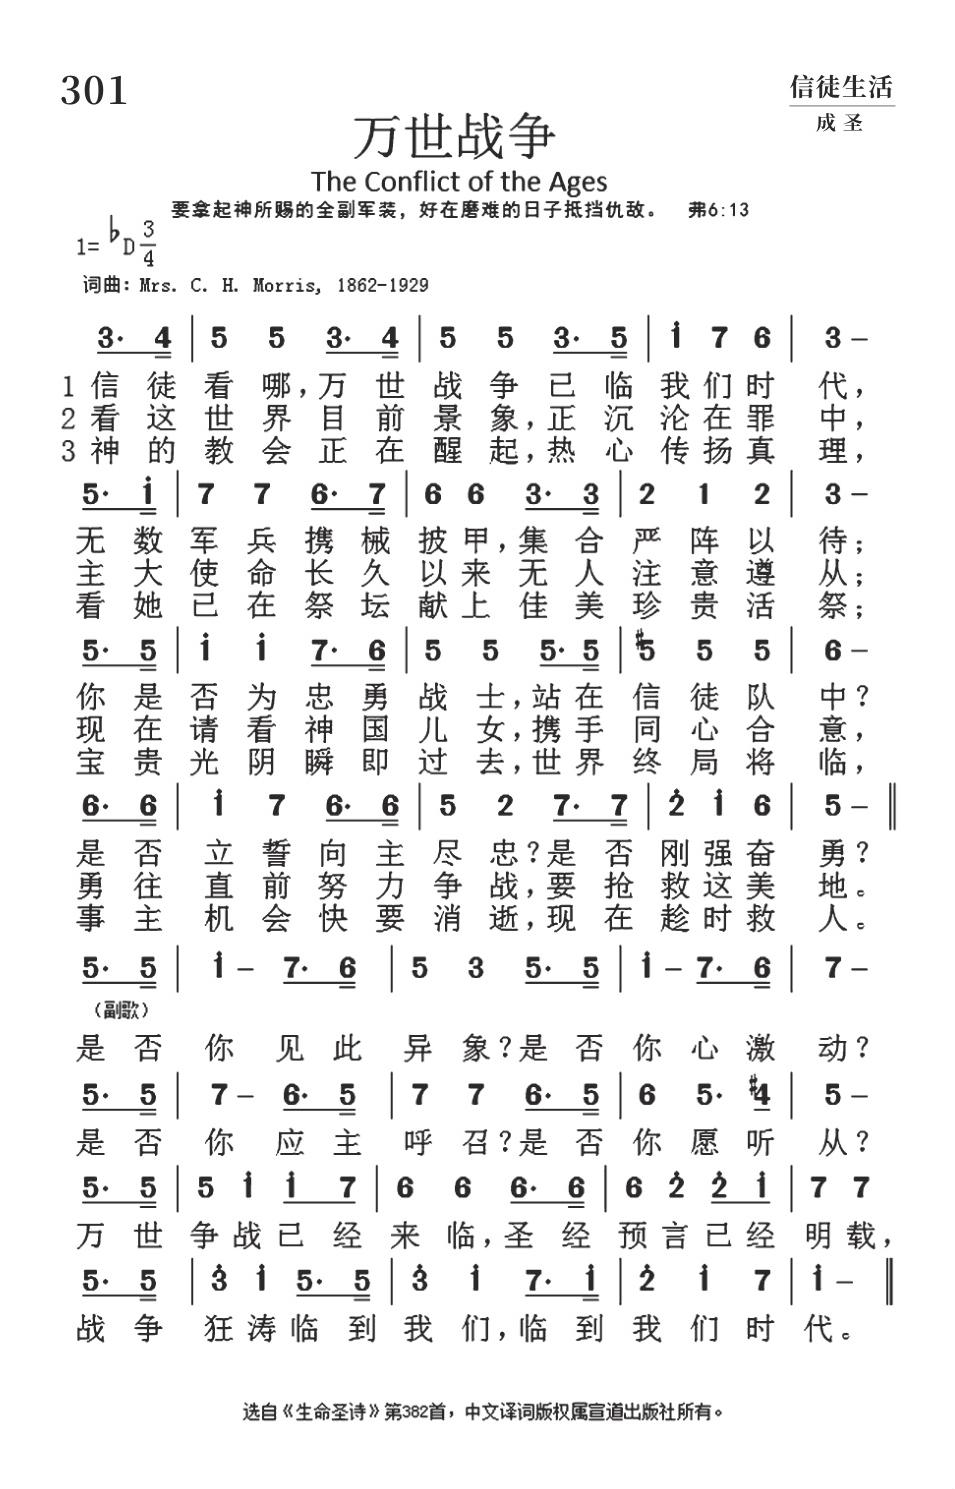 301
信徒生活
成 圣
万世战争
The Conflict of the Ages
要拿起神所赐的全副军装，好在磨难的日子抵挡仇敌。 弗6:13
1= ♭D 3/4
词曲：Mrs. C. H. Morris, 1862-1929
3· 4 | 5 5 3· 4 | 5 5 3· 5 | i 7 6 | 3 –
1 信 徒 看 哪，万 世 战 争 已 临 我 们 时 代，
2 看 这 世 界 目 前 景 象，正 沉 沦 在 罪 中，
3 神 的 教 会 正 在 醒 起，热 心 传 扬 真 理，
5· i | 7 7 6· 7 | 6 6 3· 3 | 2 1 2 | 3 –
无 数 军 兵 携 械 披 甲，集 合 严 阵 以 待；
主 大 使 命 长 久 以 来 无 人 注 意 遵 从；
看 她 已 在 祭 坛 献 上 佳 美 珍 贵 活 祭；
5· 5 | i i 7· 6 | 5 5 5· 5 | ♯5 5 5 | 6 –
你 是 否 为 忠 勇 战 士，站 在 信 徒 队 中？
现 在 请 看 神 国 儿 女，携 手 同 心 合 意，
宝 贵 光 阴 瞬 即 过 去，世 界 终 局 将 临，
6· 6 | i 7 6· 6 | 5 2 7· 7 | 2̇ i 6 | 5 – ‖
是 否 立 誓 向 主 尽 忠？是 否 刚 强 奋 勇？
勇 往 直 前 努 力 争 战，要 抢 救 这 美 地。
事 主 机 会 快 要 消 逝，现 在 趁 时 救 人。
5· 5 | i – 7· 6 | 5 3 5· 5 | i – 7· 6 | 7 –
（副歌）
是 否 你 见 此 异 象？是 否 你 心 激 动？
5· 5 | 7 – 6· 5 | 7 7 6· 5 | 6 5· ♯4 | 5 –
是 否 你 应 主 呼 召？是 否 你 愿 听 从？
5· 5 | 5 i i 7 | 6 6 6· 6 | 6 2̇ 2̇ i | 7 7
万 世 争 战 已 经 来 临，圣 经 预 言 已 经 明 载，
5· 5 | 3̇ i 5· 5 | 3̇ i 7· i | 2̇ i 7 | i – ‖
战 争 狂 涛 临 到 我 们，临 到 我 们 时 代。
选自《生命圣诗》第382首，中文译词版权属宣道出版社所有。